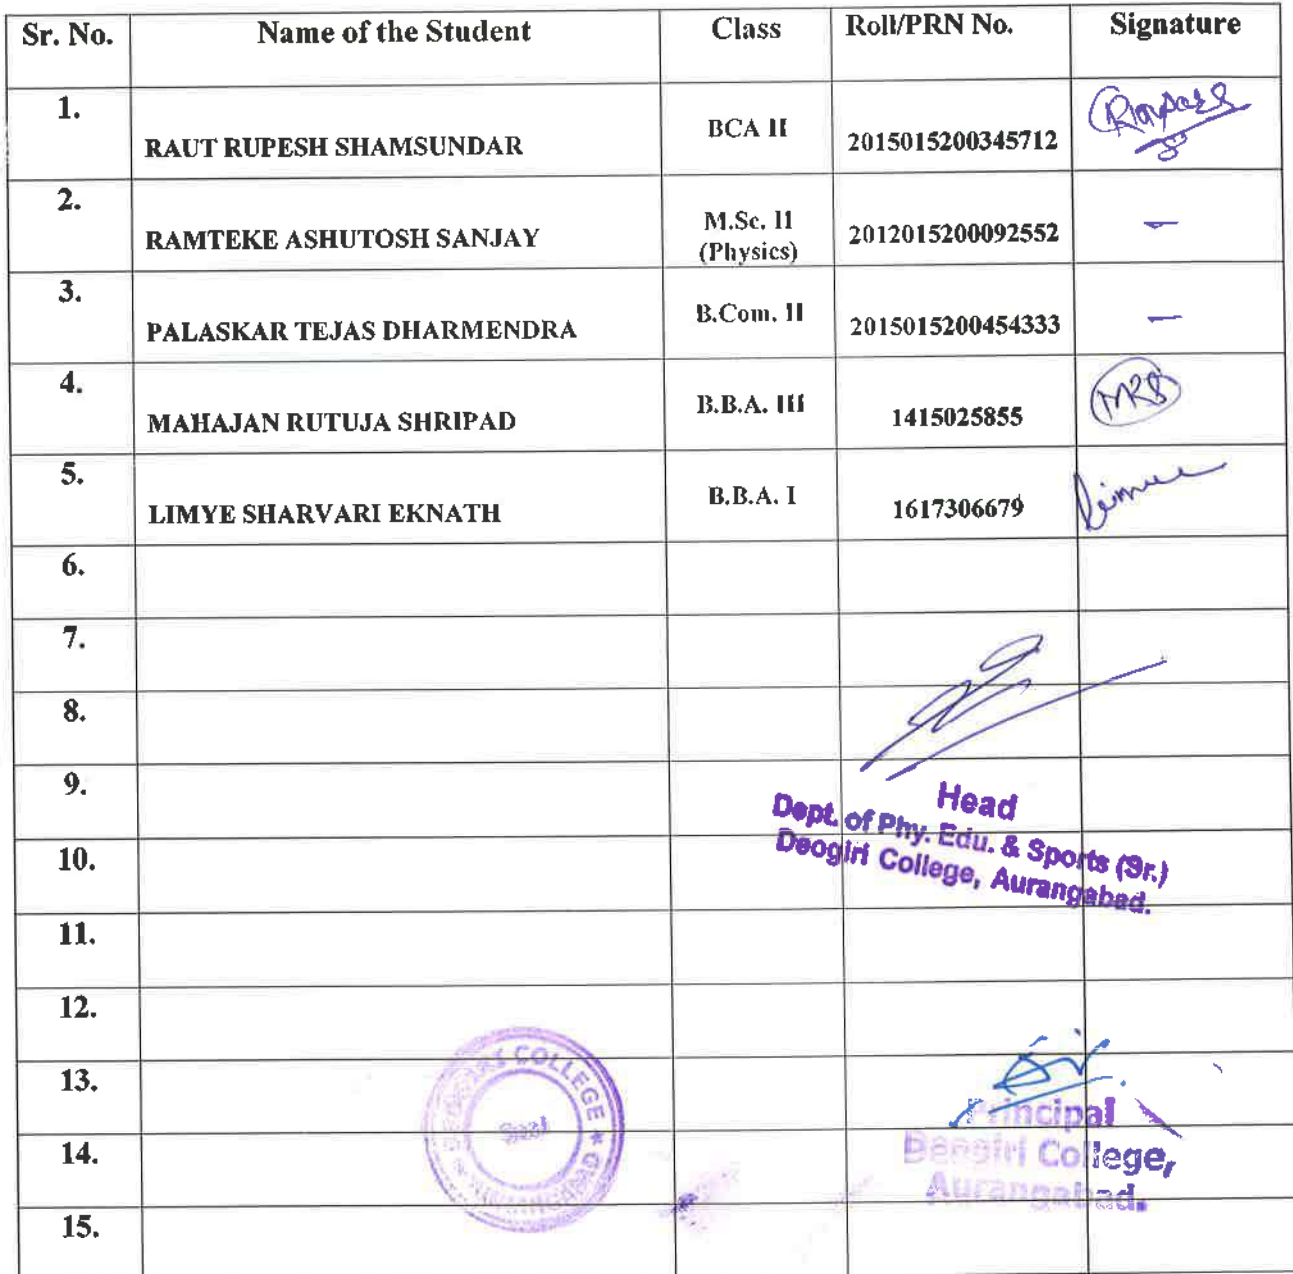 Sr. No. Name of the Student Class Roll/PRN No. Signature
1. RAUT RUPESH SHAMSUNDAR BCA II 2015015200345712
2. RAMTEKE ASHUTOSH SANJAY M.Sc. II (Physics) 2012015200092552 –
3. PALASKAR TEJAS DHARMENDRA B.Com. II 2015015200454333 –
4. MAHAJAN RUTUJA SHRIPAD B.B.A. III 1415025855 MRS
5. LIMYE SHARVARI EKNATH B.B.A. I 1617306679
6.
7.
8.
9.
Head
Dept. of Phy. Edu. & Sports (Sr.)
Deogiri College, Aurangabad.
10.
11.
12.
13.
COLLEGE
Seal
Principal
Deogiri College,
Aurangabad.
14.
15.